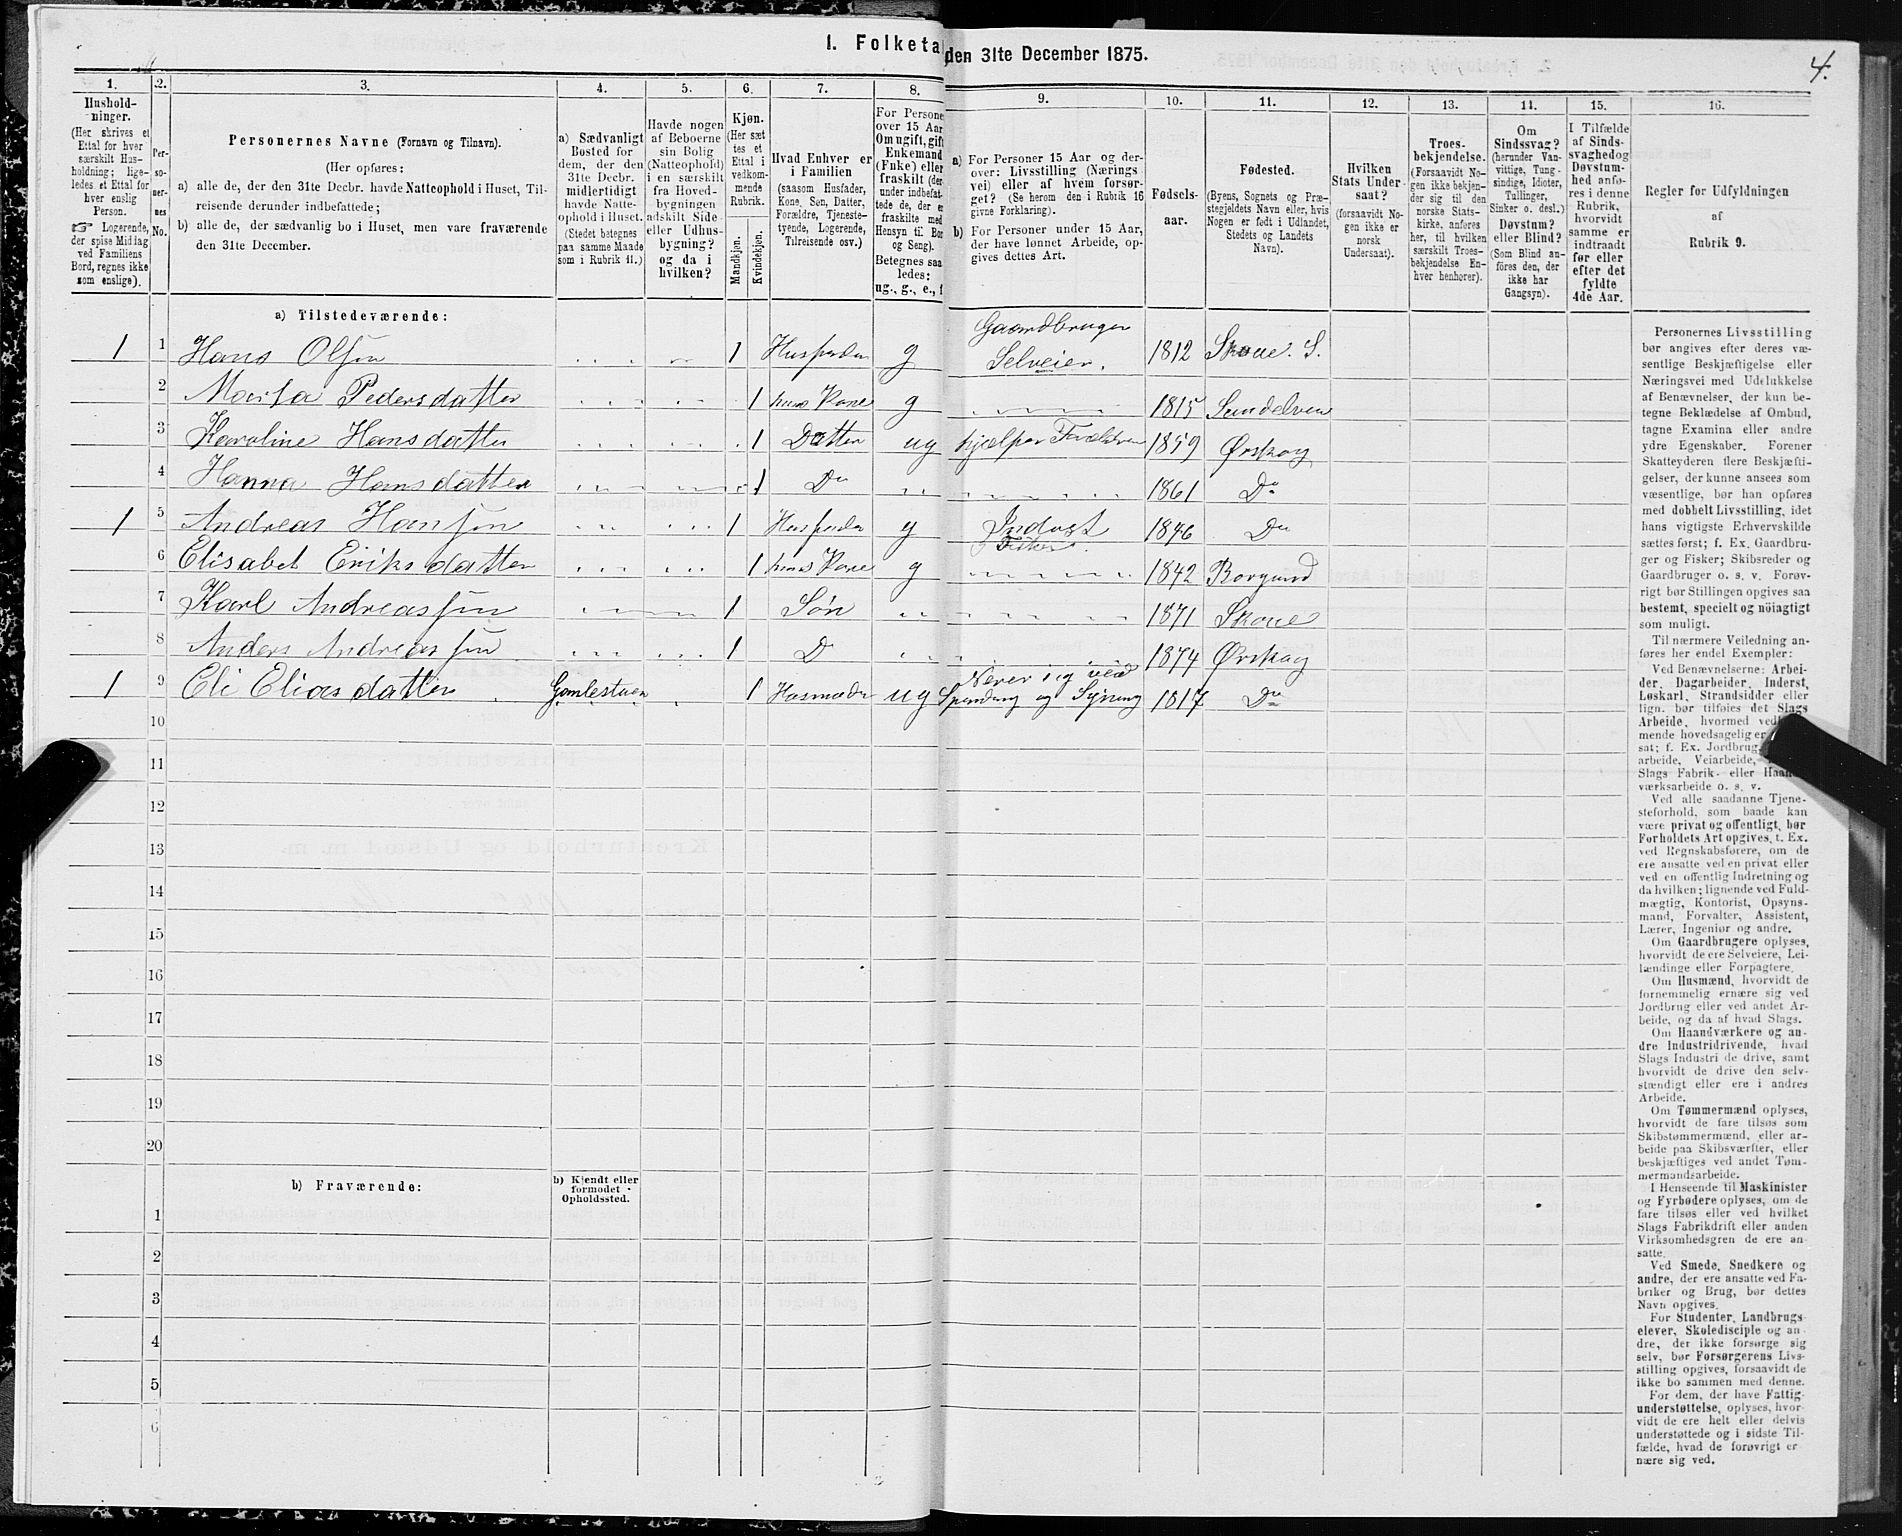 1. Folketa den 31te December 1875.
4.
1.
Hushold-
ninger.
(Her skrives et
Ettal for hver
særskilt Hus-
holdning; lige-
ledes et Ettal for
hver enslig
Person.
☞ Logerende,
der spise Middag
ved Familiens
Bord, regnes ikke
som enslige).
2.
Per-
so-
ner-
nes
No.
3.
Personernes Navne (Fornavn og Tilnavn).
(Her opføres:
a) alle de, der den 31te Decbr. havde Natteophold i Huset, Til-
reisende derunder indbefattede;
b) alle de, der sædvanlig bo i Huset, men vare fraværende
den 31te December.
4.
a) Sædvanligt
Bosted for
dem, der den
31te Decbr.
midlertidigt
havde Natte-
ophold i Huset.
(Stedet betegnes
paa samme Maade
som i Rubrik 11.)
5.
Havde nogen
af Beboerne
sin Bolig
(Natteophold)
i en særskilt
fra Hoved-
bygningen
adskilt Side-
eller Udhus-
bygning?
og da i
hvilken?
6.
Kjøn.
(Her sæt-
tes et
Ettal i
vedkom-
mende
Rubrik.)
Mandkjøn.
Kvindekjøn.
7.
Hvad Enhver er
i Familien
(saasom Husfader,
Kone, Søn, Datter,
Forældre, Tjeneste-
tyende, Logerende,
Tilreisende osv.)
8.
For Persone
over 15 Aar
Om ugift, gift
Enkemand
(Enke) eller
fraskilt (der
under indbefat-
tede de, der e
fraskilte med
Hensyn til Bor
og Seng).
Betegnes saa
ledes:
ug., g., e., f
9.
a) For Personer 15 Aar og der-
over: Livsstilling (Nærings-
vei) eller af hvem forsør-
get? (Se herom den i Rubrik 16
givne Forklaring).
b) For Personer under 15 Aar,
der have lønnet Arbeide, op-
gives dettes Art.
10.
Fødsels-
aar.
11.
Fødested.
(Byens, Sognets og Præ-
stegjeldets Navn eller, hvis
Nogen er født i Udlandet,
Stedets og Landets
Navn).
12.
Hvilken
Stats Under-
saat?
(forsaavidt No-
gen ikke er
norsk
Undersaat).
13.
Troes-
bekjendelse.
(Forsaavidt No-
gen ikke bekjen-
der sig til den
norske Stats-
kirke, anføres
her, til hvilken
særskilt Troes-
bekjendelse En-
hver henhører).
14.
Om
Sindssvag?
(herunder Van-
vittige, Tung-
sindige, Idioter,
Tullinger,
Sinker o. desl.)
Døvstum?
eller Blind?
(Som Blind an-
føres den, der
ikke har
Gangsyn).
15.
I Tilfælde
af Sinds-
svaghed og
Døvstum-
hed anfø-
res i denne
Rubrik,
hvorvidt
samme er
indtraadt
før eller
efter det
fyldte
4de Aar.
16.
Regler for Udfyldningen
af
Rubrik 9.
a) Tilstedeværende:
1 1 Hans Olsen 1 Husfader g Gaardbruger Selveier. 1812 Skoue. S.
2 Marta Pedersdatter 1 hans Kone g 1815 Sundelven
3 Karoline Hansdatter 1 Datter ug hjælper Forældren 1859 Ørskog
4 Hanna Hansdatter 1 Do 1861 Do
1 5 Andreas Hansen 1 Husfader g Inderst Fisker. 1846 Do
6 Elisabet Eriksdatter 1 hans Kone g 1842 Borgund
7 Karl Andreassen 1 Søn 1871 Skoue
8 Anders Andreassen 1 D 1874 Ørskog
1 9 Eli Eliasdatter Gamlestuen 1 Husmoder ug Nerer sig ved Spinding og Syning 1817 Do
10
11
12
13
14
15
16
17
18
19
20
b) Fraværende:
b) Kjendt eller
formodet
Opholdssted.
1
2
3
4
5
6
Personernes Livsstilling
bør angives efter deres væ-
sentlige Beskjæftigelse eller
Næringsvei med Udelukkelse
af Benævnelser, der kun be-
tegne Beklædelse af Ombud,
tagne Examina eller andre
ydre Egenskaber. Forener
Skatteyderen flere Beskjæfti-
gelser, der kunne ansees som
væsentlige, bør han opføres
med dobbelt Livsstilling, idet
hans vigtigste Erhvervskilde
sættes først; f. Ex. Gaardbru-
ger og Fisker; Skibsreder og
Gaardbruger o. s. v. Forøv-
rigt bør Stillingen opgives saa
bestemt, specielt og nöiagtigt
som muligt.
Til nærmere Veiledning an-
føres her endel Exempler:
Ved Benævnelserne: Arbei-
der, Dagarbeider, Inderst,
Løskarl, Strandsidder eller
lign. bør tilføies det Slags
Arbeide, hvormed ved
mende hovedsagelig er
sat; f. Ex. Jordbrug,
arbeide, Veiarbeide,
Slags Fabrik- eller Haan
værksarbeide o. s. v.
Ved alle saadanne Tjene-
steforhold, som baade kan
være privat og offentligt, bør
Forholdets Art opgives, t. Ex.
ved Regnskabsførere, om de
ere ansatte ved en privat eller
ved en offentlig Indretning og
da hvilken; lignende ved Fuld-
mægtig, Kontorist, Opsyns-
mand, Forvalter, Assistent,
Lærer, Ingeniør og andre.
Om Gaardbrugere oplyses,
hvorvidt de ere Selveiere, Lei-
lændinge eller Forpagtere.
Om Husmænd, hvorvidt de
fornemmelig ernære sig ved
Jordbrug eller ved andet Ar-
beide, og da af hvad Slags.
Om Haandværkere og an-
dre Industridrivende, hvad
Slags Industri de drive, samt
hvorvidt de drive den selv-
stændigt eller ere i andres
Arbeide.
Om Tømmermænd oplyses,
hvorvidt de fare tilsøs som
Skibstømmermænd, eller ar-
beide paa Skibsværfter, eller
beskjæftiges ved andet Tøm-
mermandsarbeide.
I Henseende til Maskinister
og Fyrbødere oplyses, om de
fare tilsøs eller ved hvilket
Slags Fabrikdrift eller anden
Virksomhedsgren de ere an-
satte.
Ved Smede, Snedkere og
andre, der ere ansatte ved Fa-
briker og Brug, bør dettes
Navn opgives.
For Studenter, Landbrugs-
elever, Skoledisciple og an-
dre, der ikke forsørge sig
selv, bør Forsørgerens Livs-
stilling opgives, forsaavidt de
ikke bo sammen med denne.
For dem, der have Fattig-
understøttelse, oplyses, hvor-
vidt de ere helt eller delvis
understøttede og i sidste Til-
fælde, hvad de forøvrigt er-
nære sig ved.